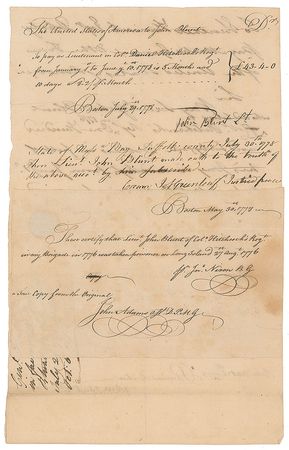 Dr
The United States of America to John Blunt
To pay as Lieutenant in Colo. Daniel Hitchcock's Regt
from January 1st to June 10th 1778 is 5 Months and £43.4.0
10 days a
Boston July 29th 1778
John Blunt Lt
State of Mass Bay Suffolk County July 30th 1778
Then Lieut John Blunt made oath to the truth of
the above accot by him
Coram J. Greenleaf Justice peace
Boston May 30th 1778
I hereby certify that Lieut John Blunt of Colo Hitchcock's Regt
in my Brigade in 1776 was taken prisoner on Long Island 27th Augt 1776
Jno Nixon B.G.
Copy
a true Copy from the Original
John Adams Asst D.P.M.G